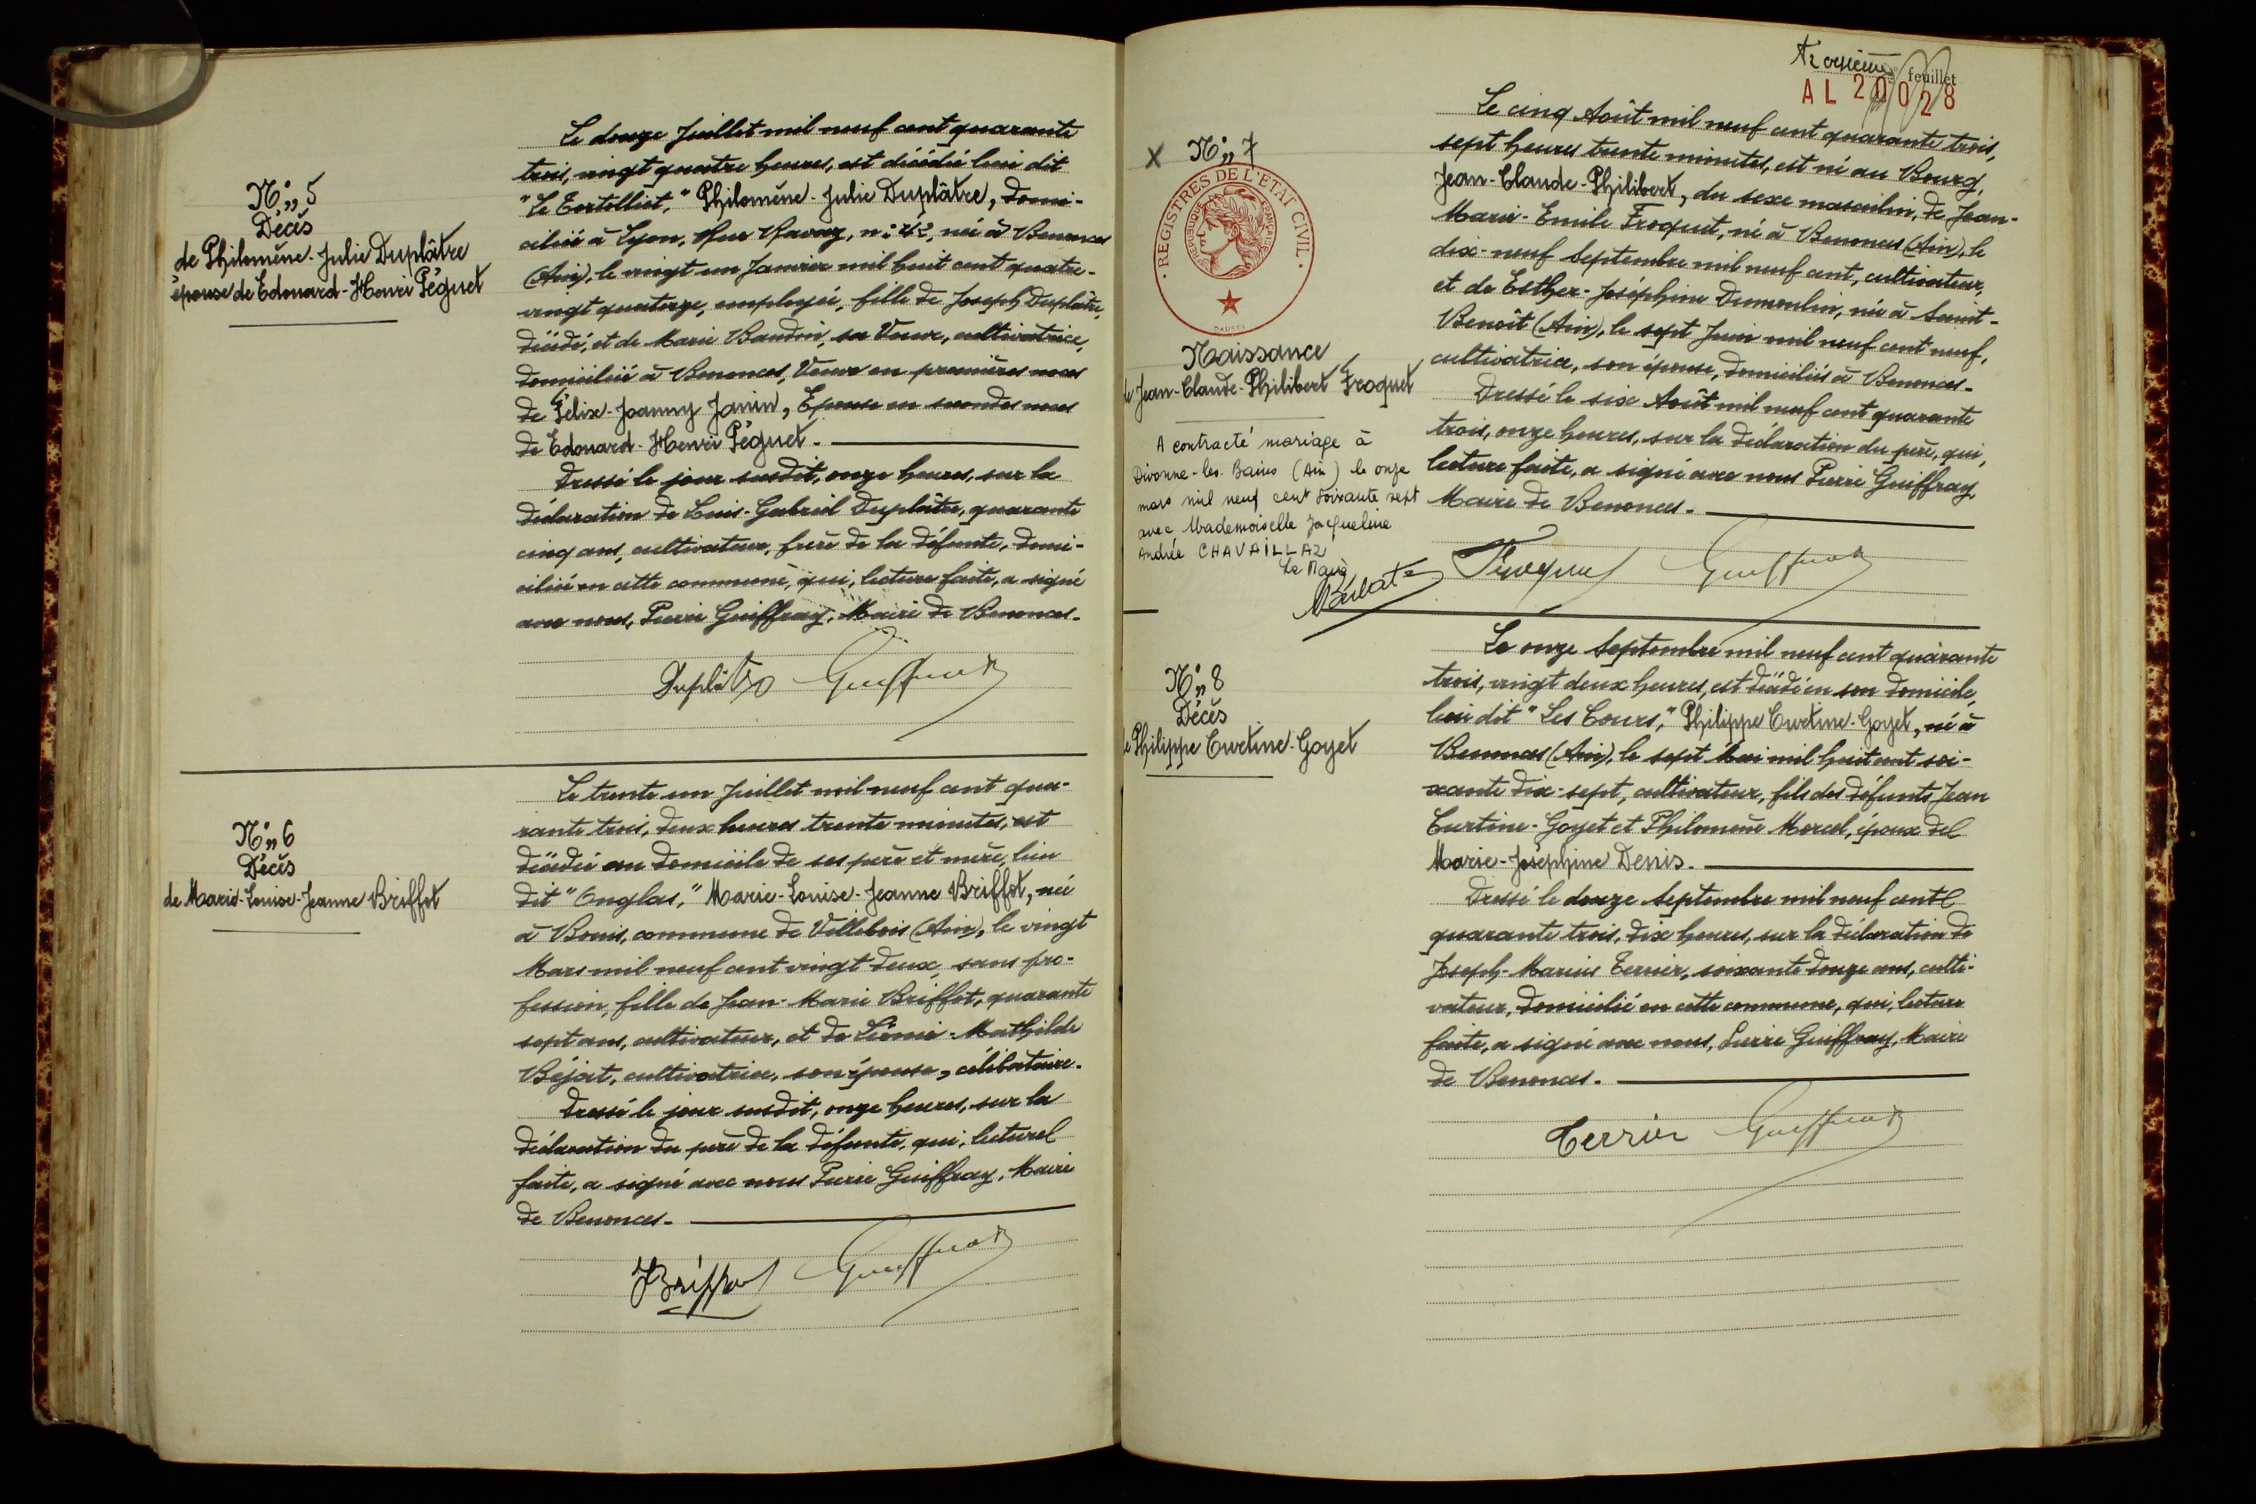 N° 5
Décès
de Philomène-Julie Duplâtre
épouse de Edouard-Henri Péguet
Le douze Juillet mil neuf cent quarante
trois, vingt quatre heures, est décédée lieu dit
"Le Tortolliet," Philomène-Julie Duplâtre, domi-
ciliée à Lyon, Rue Ravaz, n°, née à Benonces
(Ain), le vingt un Janvier mil huit cent quatre-
vingt quatorze, employée, fille de Joseph Duplâtre,
décédé, et de Marie Baudin, sa Veuve, cultivatrice,
domiciliée à Benonces, Veuve en premières noces
de Félix-Joanny Janin, Epouse en secondes noces
de Edouard-Henri Péguet.
Dressé le jour susdit, onze heures, sur la
déclaration de Louis-Gabriel Duplâtre, quarante
cinq ans, cultivateur, frère de la défunte, domi-
cilié en cette commune, qui, lecture faite, a signé
avec nous, Pierre Guiffray, Maire de Benonces.
Duplâtre Guiffray
N° 6
Décès
de Marie-Louise-Jeanne Briffot
Le trente un Juillet mil neuf cent qua-
rante trois, deux heures trente minutes, est
décédée au domicile de ses père et mère, lieu
dit "Onglas," Marie-Louise-Jeanne Briffot, née
à Bouis, commune de Villebois (Ain), le vingt
Mars mil neuf cent vingt deux, sans pro-
fession, fille de Jean-Marie Briffot, quarante
sept ans, cultivateur, et de Léonie-Mathilde
Béjat, cultivatrice, son épouse, célibataire.
Dressé le jour susdit, onze heures, sur la
déclaration du père de la défunte, qui, lecture
faite, a signé avec nous Pierre Guiffray, Maire
de Benonces.
JBriffot Guiffray
Troisième feuillet
AL 20028
N° 7
REGISTRES DE L'ETAT CIVIL
REPUBLIQUE FRANCAISE
Naissance
de Jean-Claude-Philibert Froquet
A contracté mariage à
Divonne-les-Bains (Ain) le onze
mars mil neuf cent soixante sept
avec Mademoiselle Jacqueline
Andrée CHAVAILLAZ
Le Maire
Le cinq Août mil neuf cent quarante trois,
sept heures trente minutes, est né au Bourg,
Jean-Claude-Philibert, du sexe masculin, de Jean-
Marie-Emile Froquet, né à Benonces (Ain), le
dix-neuf Septembre mil neuf cent, cultivateur,
et de Esther-Joséphine Dumoulin, née à Saint-
Benoît (Ain), le sept Juin mil neuf cent neuf,
cultivatrice, son épouse, domiciliés à Benonces.
Dressé le six Août mil neuf cent quarante
trois, onze heures, sur la déclaration du père, qui,
lecture faite, a signé avec nous Pierre Guiffray
Maire de Benonces.
Froquet Guiffray
N° 8
Décès
de Philippe Curtine-Goyet
Le onze Septembre mil neuf cent quarante
trois, vingt deux heures, est décédé en son domicile,
lieu dit "Les Cours," Philippe Curtine-Goyet, né à
Benonces (Ain), le sept Mai mil huit cent soi-
xante dix-sept, cultivateur, fils des défunts Jean
Curtine-Goyet et Philomène Morcel, époux de
Marie-Joséphine Denis.
Dressé le douze Septembre mil neuf cent
quarante trois, dix heures, sur la déclaration de
Joseph-Marius Terrier, soixante-douze ans, culti-
vateur, domicilié en cette commune, qui, lecture
faite, a signé avec nous, Pierre Guiffray, Maire
de Benonces.
Terrier Guiffray